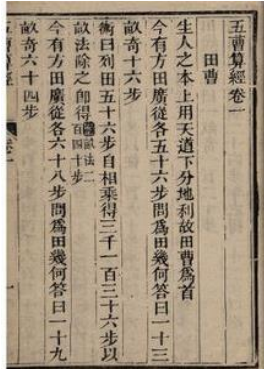 五曹算經卷一
田曹
生人之本上用天道下分地利故田曹爲首
今有方田廣從各五十六步問爲田幾何答曰一十三
畝奇十六步
術曰列田五十六步自相乘得三千一百三十六步以
畝法除之卽得畝法二百四十步
今有方田廣從各六十八步問爲田幾何答曰一十九
畝奇六十四步
五曹算經
卷一
一